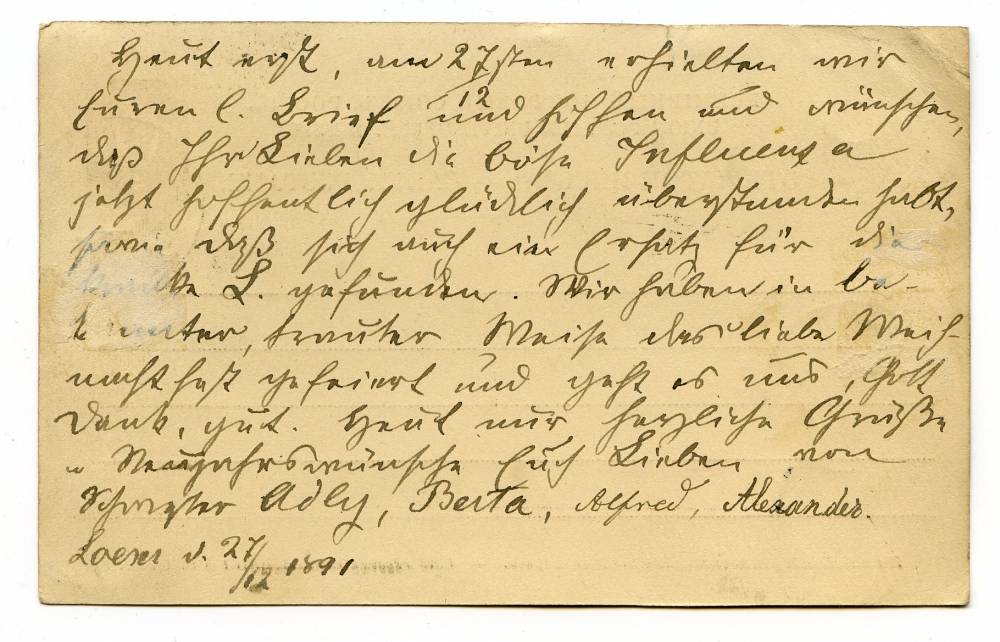 Heut erst, am 27sten erhielten wir
12
Euren l. Brief und hoffen und wünschen,
daß Ihr Lieben die böse Influenza
jetzt hoffentlich glücklich überstanden habt,
sowie daß sich auch ein Ersatz für die
L. gefunden. Wir haben in be-
trauter Weise das liebe Weih-
nachtsfest gefeiert und geht es uns, Gott
Dank, gut. Heut nur herzliche Grüße
u Neujahrswünsche Euch Lieben von
Schwester Adly, Berta, Alfred, Alexander.
d. 27/12 1891